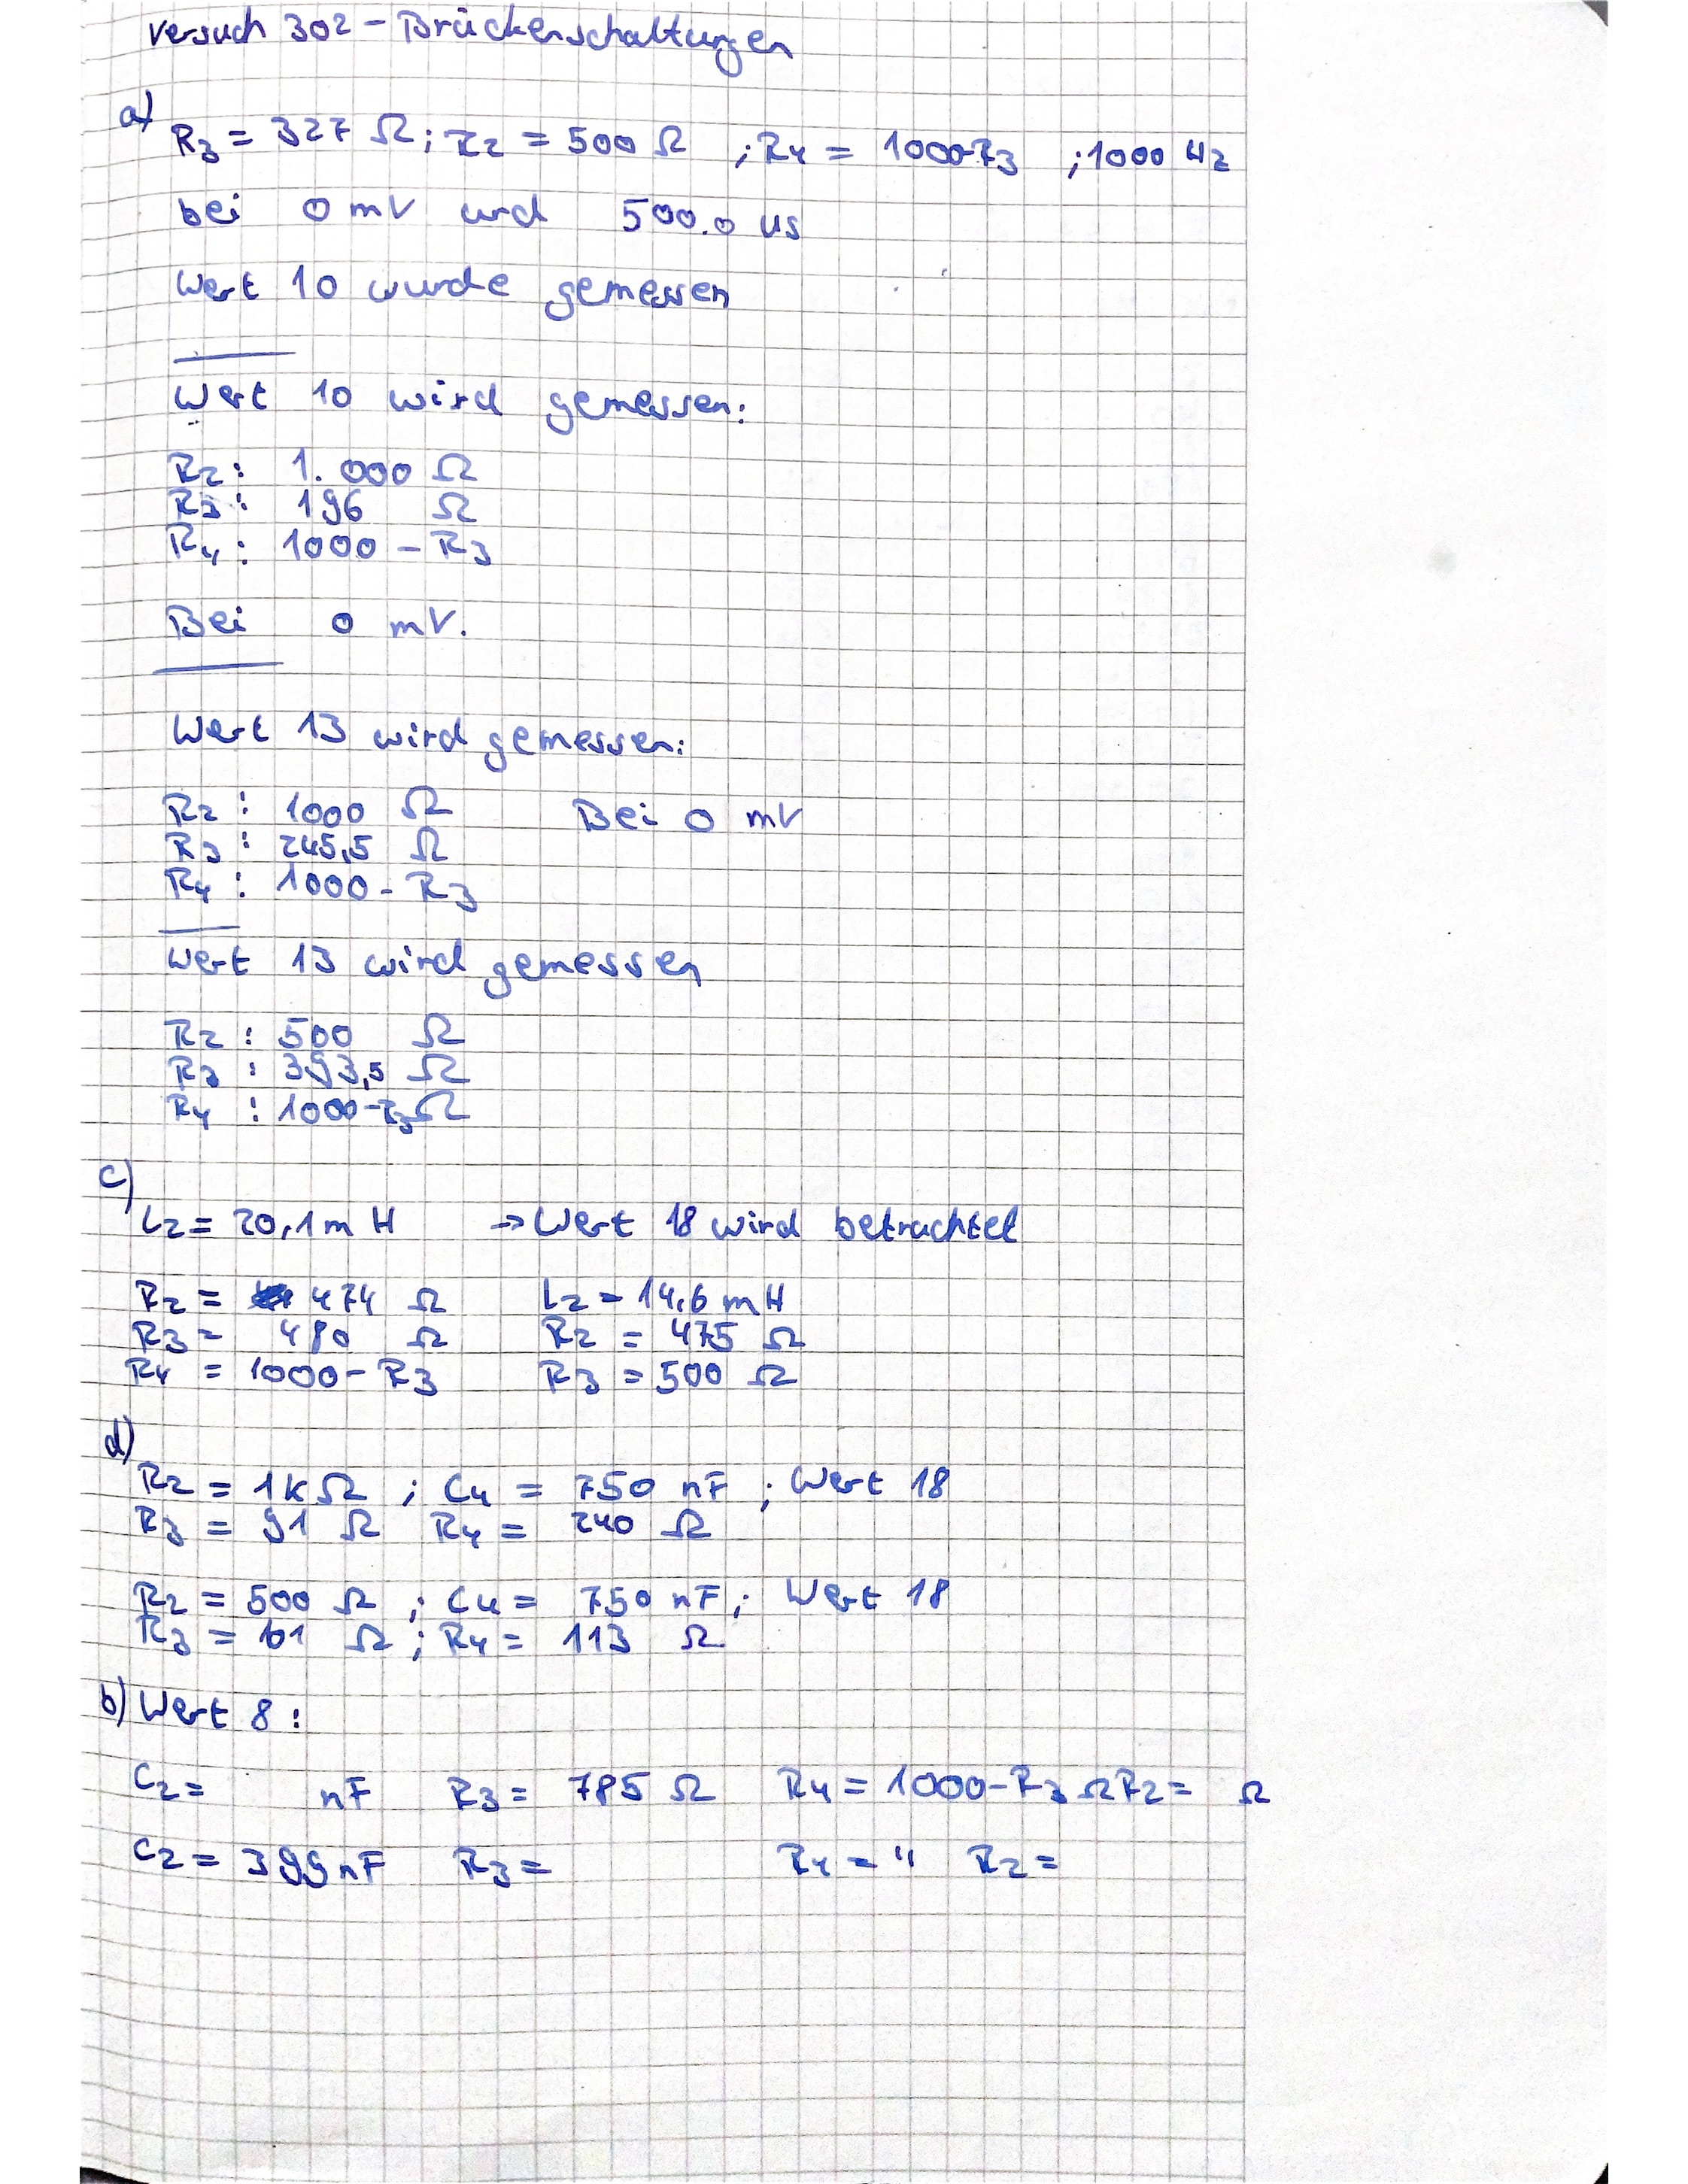 Versuch 302 - Brückenschaltungen
a)
R3 = 327 Ω ; R2 = 500 Ω ; R4 = 1000-R3 ; 1000 Hz
bei 0 mV und 500.0 us
Wert 10 wurde gemessen
Wert 10 wird gemessen:
R2: 1.000 Ω
R3: 196 Ω
R4: 1000 - R3
Bei 0 mV.
Wert 13 wird gemessen:
R2 : 1000 Ω Bei 0 mV
R3 : 245,5 Ω
R4 : 1000 - R3
Wert 13 wird gemessen
R2 : 500 Ω
R3 : 393,5 Ω
R4 : 1000-R3 Ω
c)
L2 = 20,1 m H → Wert 18 wird betrachtet
R2 = 474 Ω L2 = 14,6 mH
R3 = 480 Ω R2 = 475 Ω
R4 = 1000 - R3 R3 = 500 Ω
d)
R2 = 1kΩ ; C4 = 750 nF ; Wert 18
R3 = 91 Ω R4 = 240 Ω
R2 = 500 Ω ; C4 = 750 nF ; Wert 18
R3 = Ω ; R4 = 113 Ω
b) Wert 8 :
C2 = nF R3 = 785 Ω R4 = 1000-R3 Ω R2 = Ω
C2 = 399 nF R3 = R4 = " R2 =